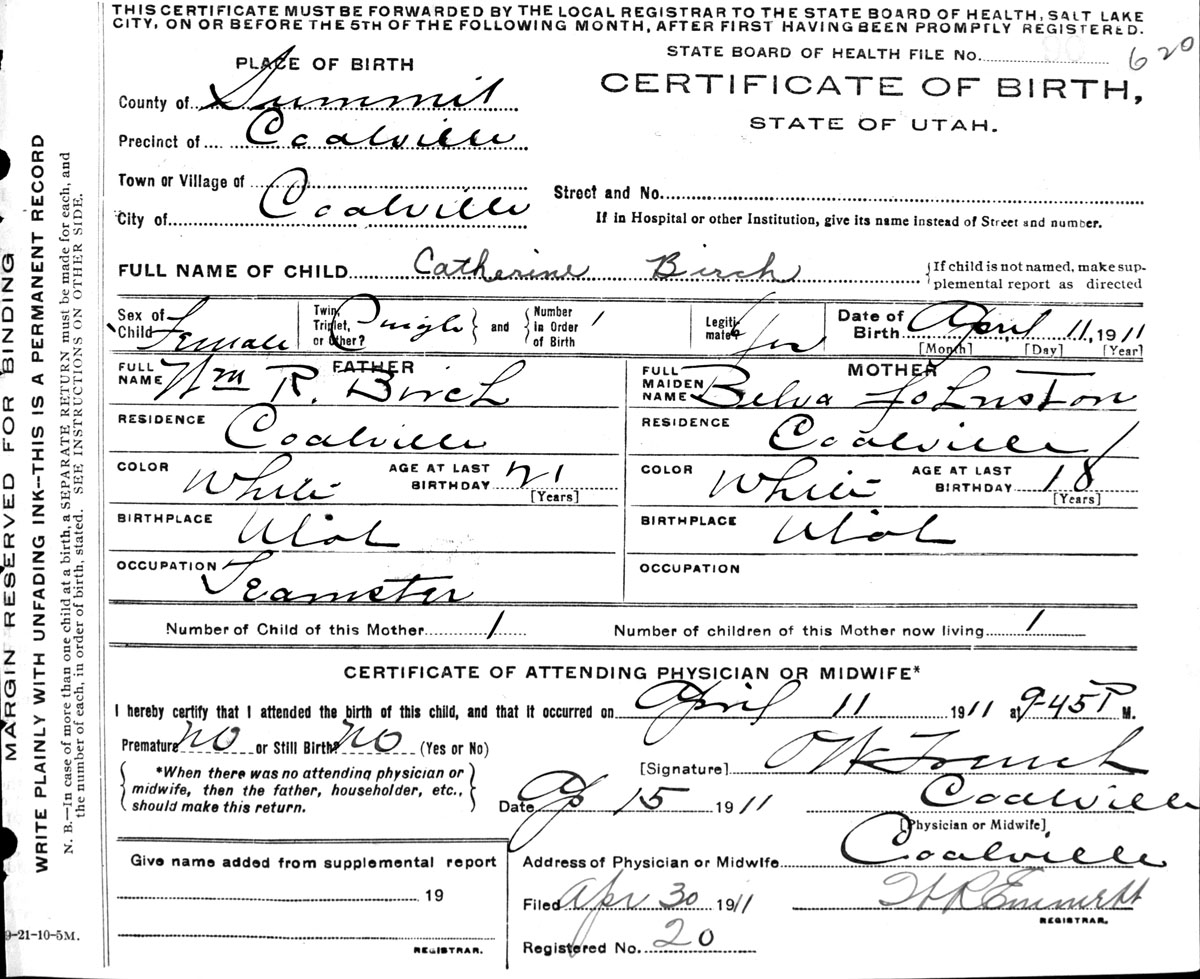 THIS CERTIFICATE MUST BE FORWARDED BY THE LOCAL REGISTRAR TO THE STATE BOARD OF HEALTH, SALT LAKE
CITY, ON OR BEFORE THE 5TH OF THE FOLLOWING MONTH, AFTER FIRST HAVING BEEN PROMPTLY REGISTERED.
STATE BOARD OF HEALTH FILE No. 620
PLACE OF BIRTH
CERTIFICATE OF BIRTH,
STATE OF UTAH.
County of Summit
Precinct of Coalville
Town or Village of
Street and No.
City of Coalville
If in Hospital or other Institution, give its name instead of Street and number.
FULL NAME OF CHILD Catherine Birch
{If child is not named, make sup-
plemental report as directed
Sex of Child Female
Twin, Triplet, or Other? Single } and { Number in Order of Birth 1
Legiti-mate?
Date of Birth April 11, 1911
[Month] [Day] [Year]
FATHER
FULL NAME Wm R. Birch
RESIDENCE Coalville
COLOR White AGE AT LAST BIRTHDAY 21 [Years]
BIRTHPLACE Utah
OCCUPATION Teamster
MOTHER
FULL MAIDEN NAME Belva Johnston
RESIDENCE Coalville
COLOR White AGE AT LAST BIRTHDAY 18 [Years]
BIRTHPLACE Utah
OCCUPATION
Number of Child of this Mother 1 Number of children of this Mother now living 1
CERTIFICATE OF ATTENDING PHYSICIAN OR MIDWIFE*
I hereby certify that I attended the birth of this child, and that it occurred on April 11 1911 at 9-45 P M.
Premature No or Still Birth? No (Yes or No)
{ *When there was no attending physician or
midwife, then the father, householder, etc.,
should make this return. }
[Signature] French
Date Ap 15 1911 Coalville
[Physician or Midwife]
Address of Physician or Midwife Coalville
Give name added from supplemental report
19
REGISTRAR.
Filed Apr 30 1911 Emmertt
REGISTRAR.
Registered No. 20
9-21-10-5M.
MARGIN RESERVED FOR BINDING
WRITE PLAINLY WITH UNFADING INK--THIS IS A PERMANENT RECORD
N. B.—In case of more than one child at a birth, a SEPARATE RETURN must be made for each, and
the number of each, in order of birth, stated. SEE INSTRUCTIONS ON OTHER SIDE.